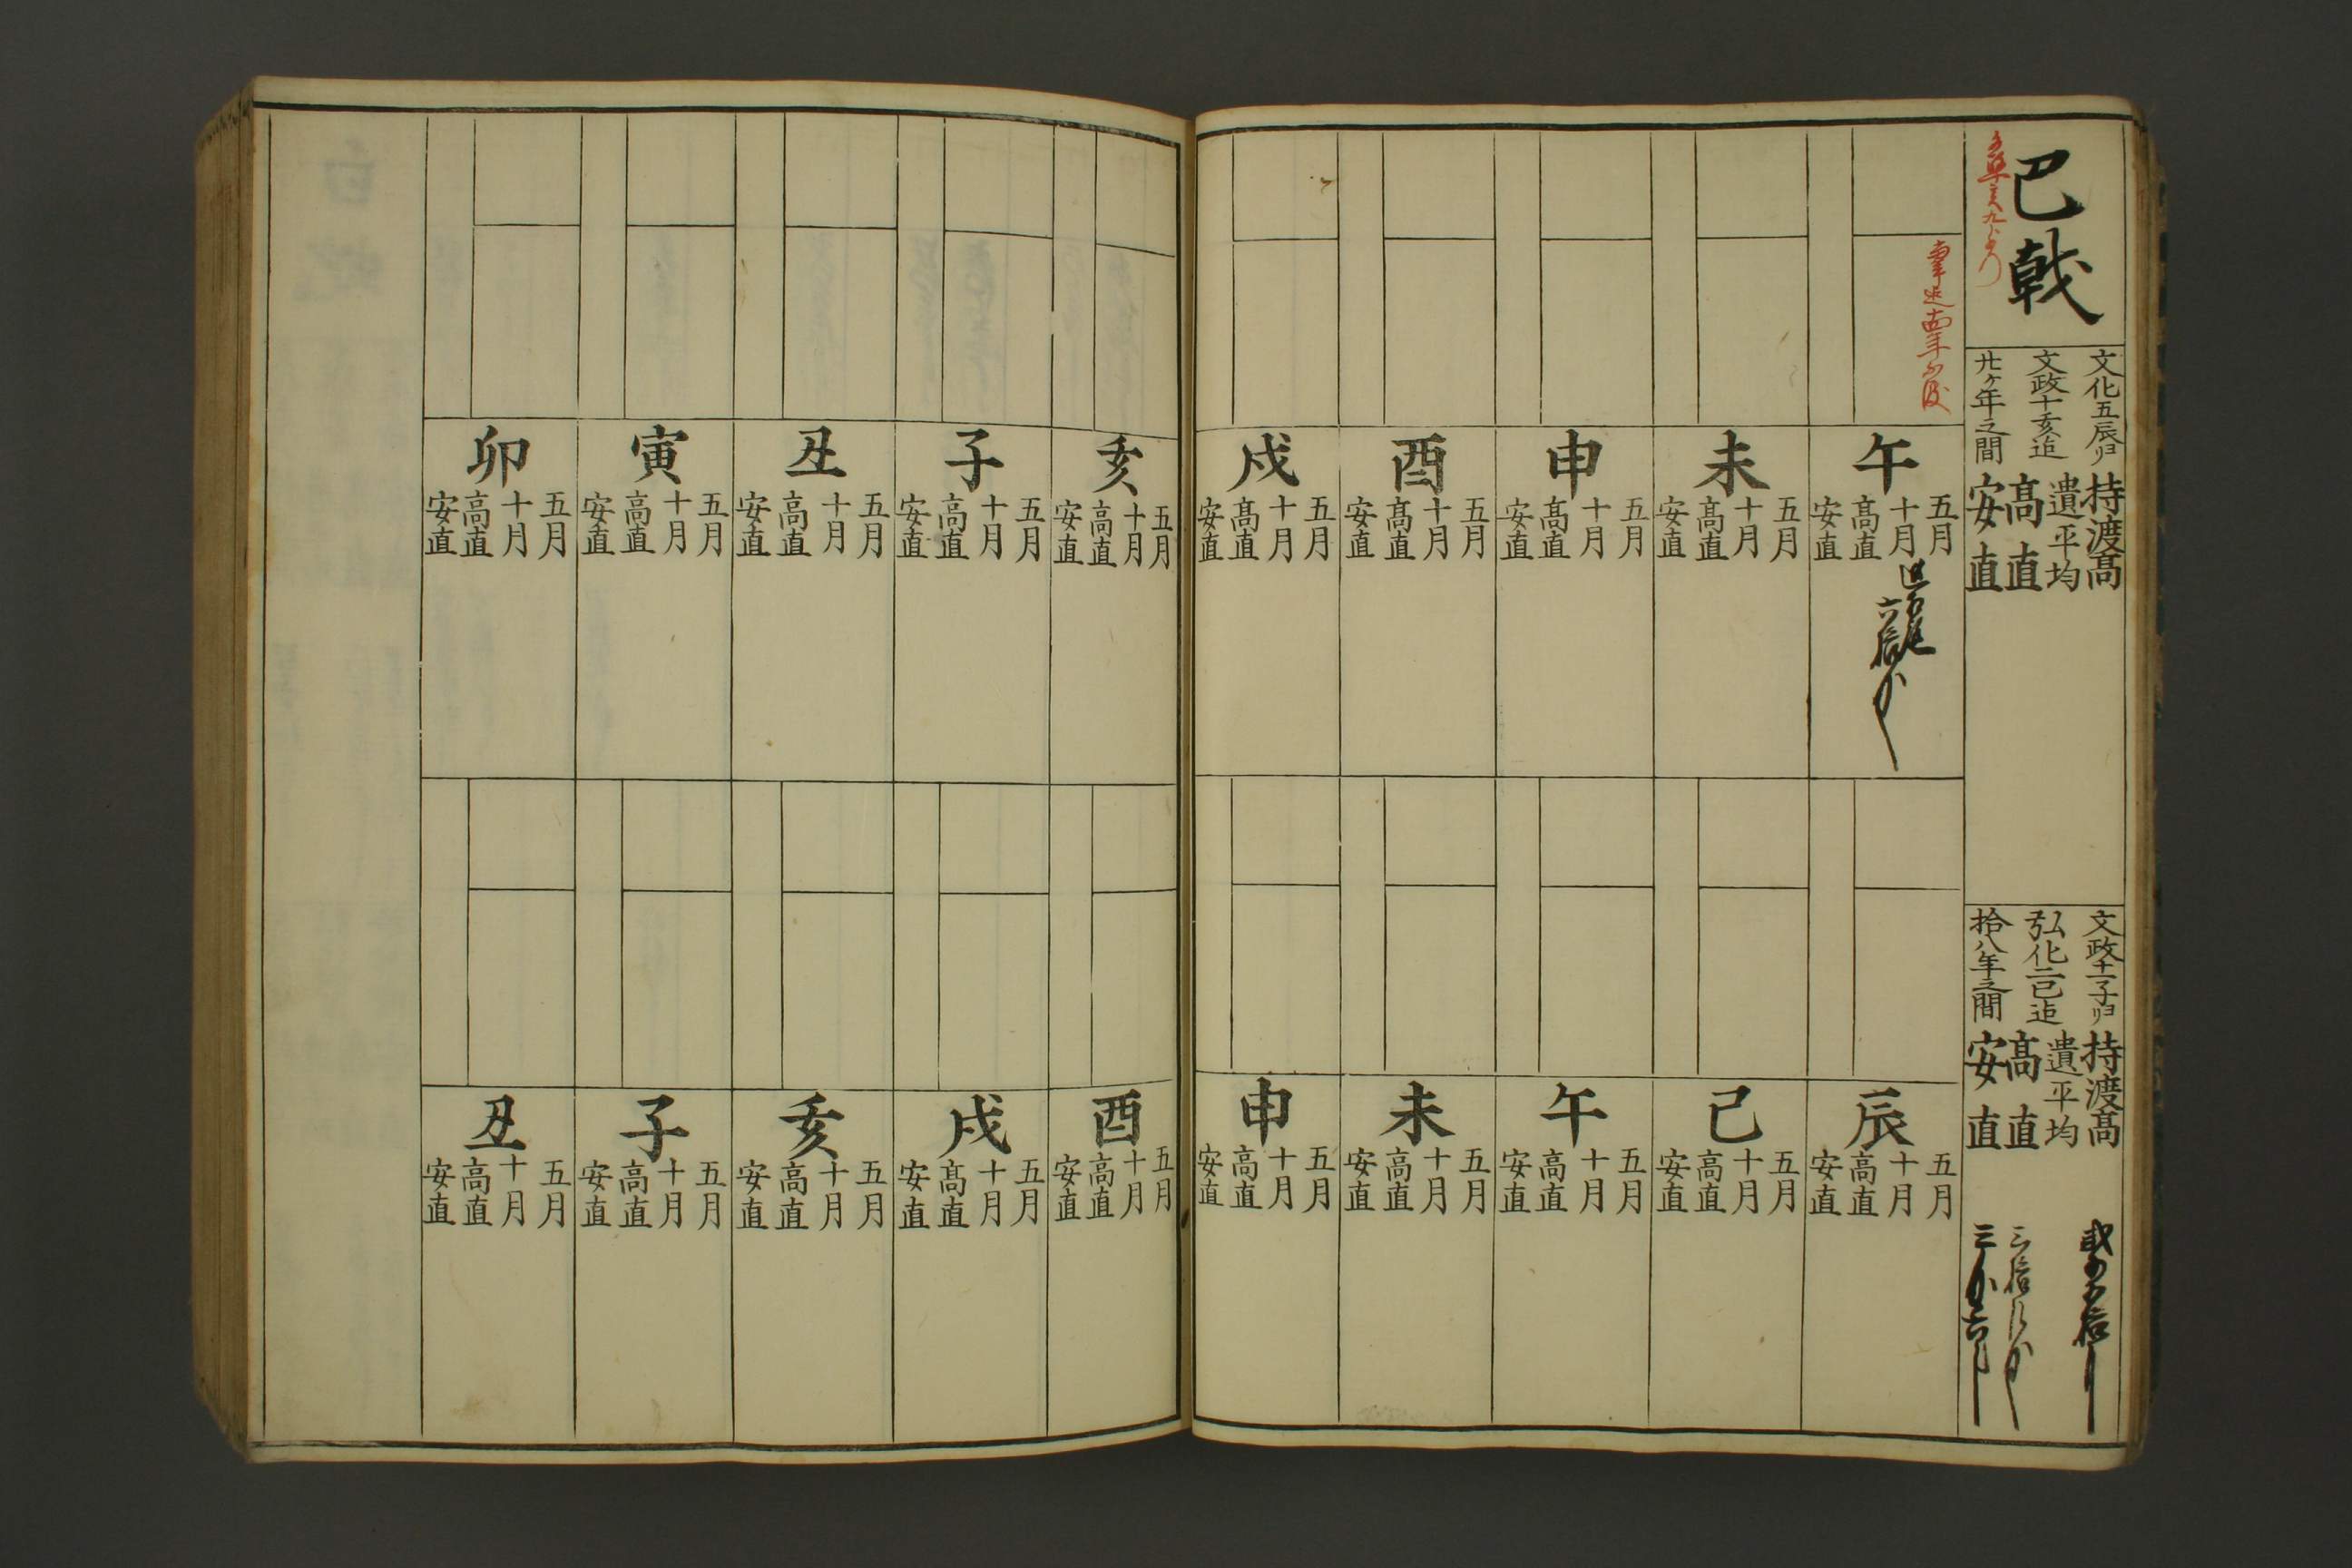 巴戟
文化五辰ヨリ
文政十亥迠
廿ケ年之間
持渡髙
遣平均
髙直
安直
文政十一子ヨリ
弘化二巳迠
拾八年之間
持渡髙
遣平均
髙直
安直
午
五月
十月
髙直
安直
未
五月
十月
髙直
安直
申
五月
十月
髙直
安直
酉
五月
十月
髙直
安直
戌
五月
十月
髙直
安直
亥
五月
十月
高直
安直
子
五月
十月
高直
安直
丑
五月
十月
高直
安直
寅
五月
十月
高直
安直
卯
五月
十月
高直
安直
辰
五月
十月
高直
安直
巳
五月
十月
高直
安直
午
五月
十月
高直
安直
未
五月
十月
高直
安直
申
五月
十月
高直
安直
酉
五月
十月
高直
安直
戌
五月
十月
髙直
安直
亥
五月
十月
高直
安直
子
五月
十月
高直
安直
丑
五月
十月
高直
安直